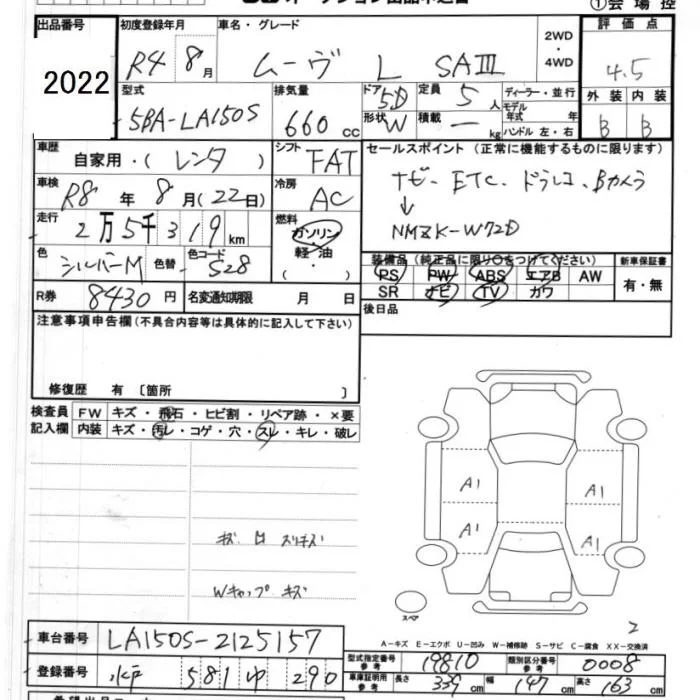 ①会場控
出品番号 初度登録年月 車名・グレード 2WD・4WD 評価点
2022 R4 8月 ムーヴ L SAⅢ 4.5
型式 排気量 ドア 定員 ディーラー・並行 外装 内装
5BA-LA150S 660cc 5D 5人 モデル年式 年式 B B
形状 W 積載 ー kg ハンドル 左・右
車歴 自家用・(レンタ) シフト FAT セールスポイント(正常に機能するものに限ります)
車検 R8年 8月(22日) 冷房 AC ナビ、ETC、ドラレコ、Bカメラ
↓
走行 2万5千319km 燃料 ガソリン 軽・油 ( ・ ) NMZK-W72D
色 シルバーM 色替 色コード S28
装備品(純正品に限り○をつけてください) 新車保証書
PS PW ABS エアB AW 有・無
SR ナビ TV カワ
R券 8430円 名変通知期限 月 日 後日品
注意事項申告欄(不具合内容等は具体的に記入して下さい)
修復歴 有 〔箇所 〕
検査員 FW キズ・飛石・ヒビ割・リペア跡・×要
記入欄 内装 キズ・汚レ・コゲ・穴・スレ・キレ・破レ
A1 A1
A1 A1
キズ スリキズ
Wキャップ キズ
スペア
2
A-キズ E-エクボ U-凹み W-補修跡 S-サビ C-腐食 XX-交換済
車台番号 LA150S-2125157
型式指定番号 参考 19810 類別区分番号 参考 0008
登録番号 水戸 581 ゆ 290
車庫証明用 参考 長さ 339cm 幅 147cm 高さ 163cm